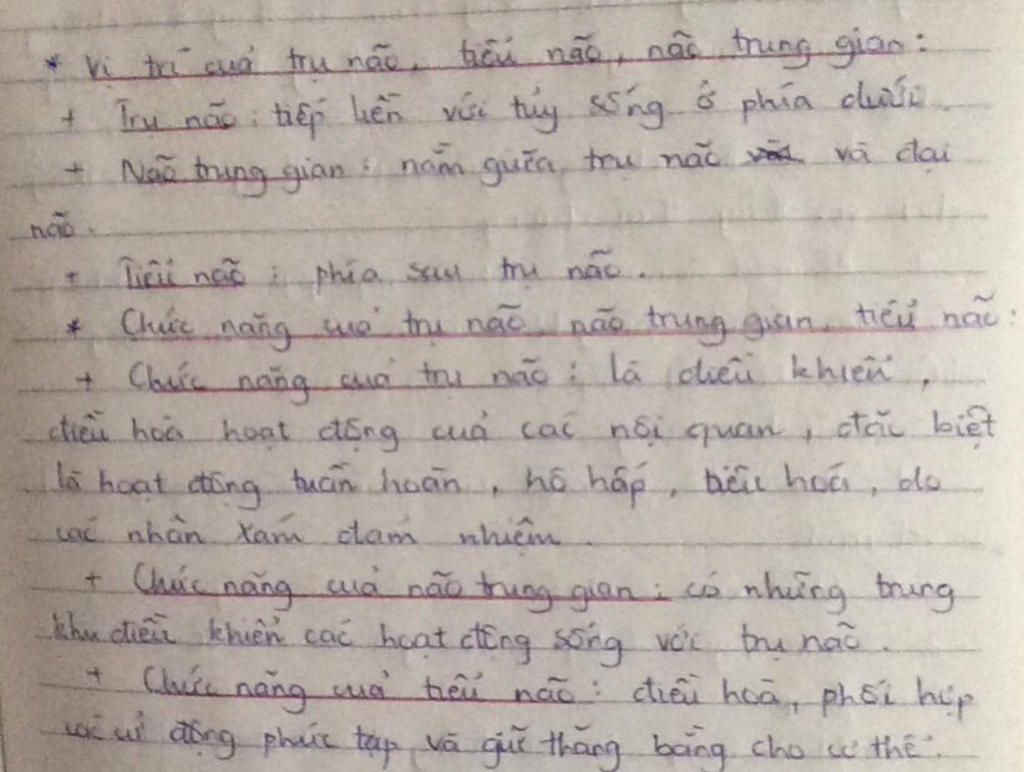 * Vị trí của trụ não, tiểu não, não trung gian:
+ Trụ não: tiếp liền với tủy sống ở phía dưới.
+ Não trung gian: nằm giữa trụ não và đại
não.
+ Tiểu não: phía sau trụ não.
* Chức năng của trụ não, não trung gian, tiểu não:
+ Chức năng của trụ não: là điều khiển,
điều hoà hoạt động của các nội quan, đặc biệt
là hoạt động tuần hoàn, hô hấp, tiêu hoá, do
các nhân xám đảm nhiệm.
+ Chức năng của não trung gian: có những trung
khu điều khiển các hoạt động sống với trụ não.
+ Chức năng của tiểu não: điều hoà, phối hợp
các cử động phức tạp và giữ thăng bằng cho cơ thể.